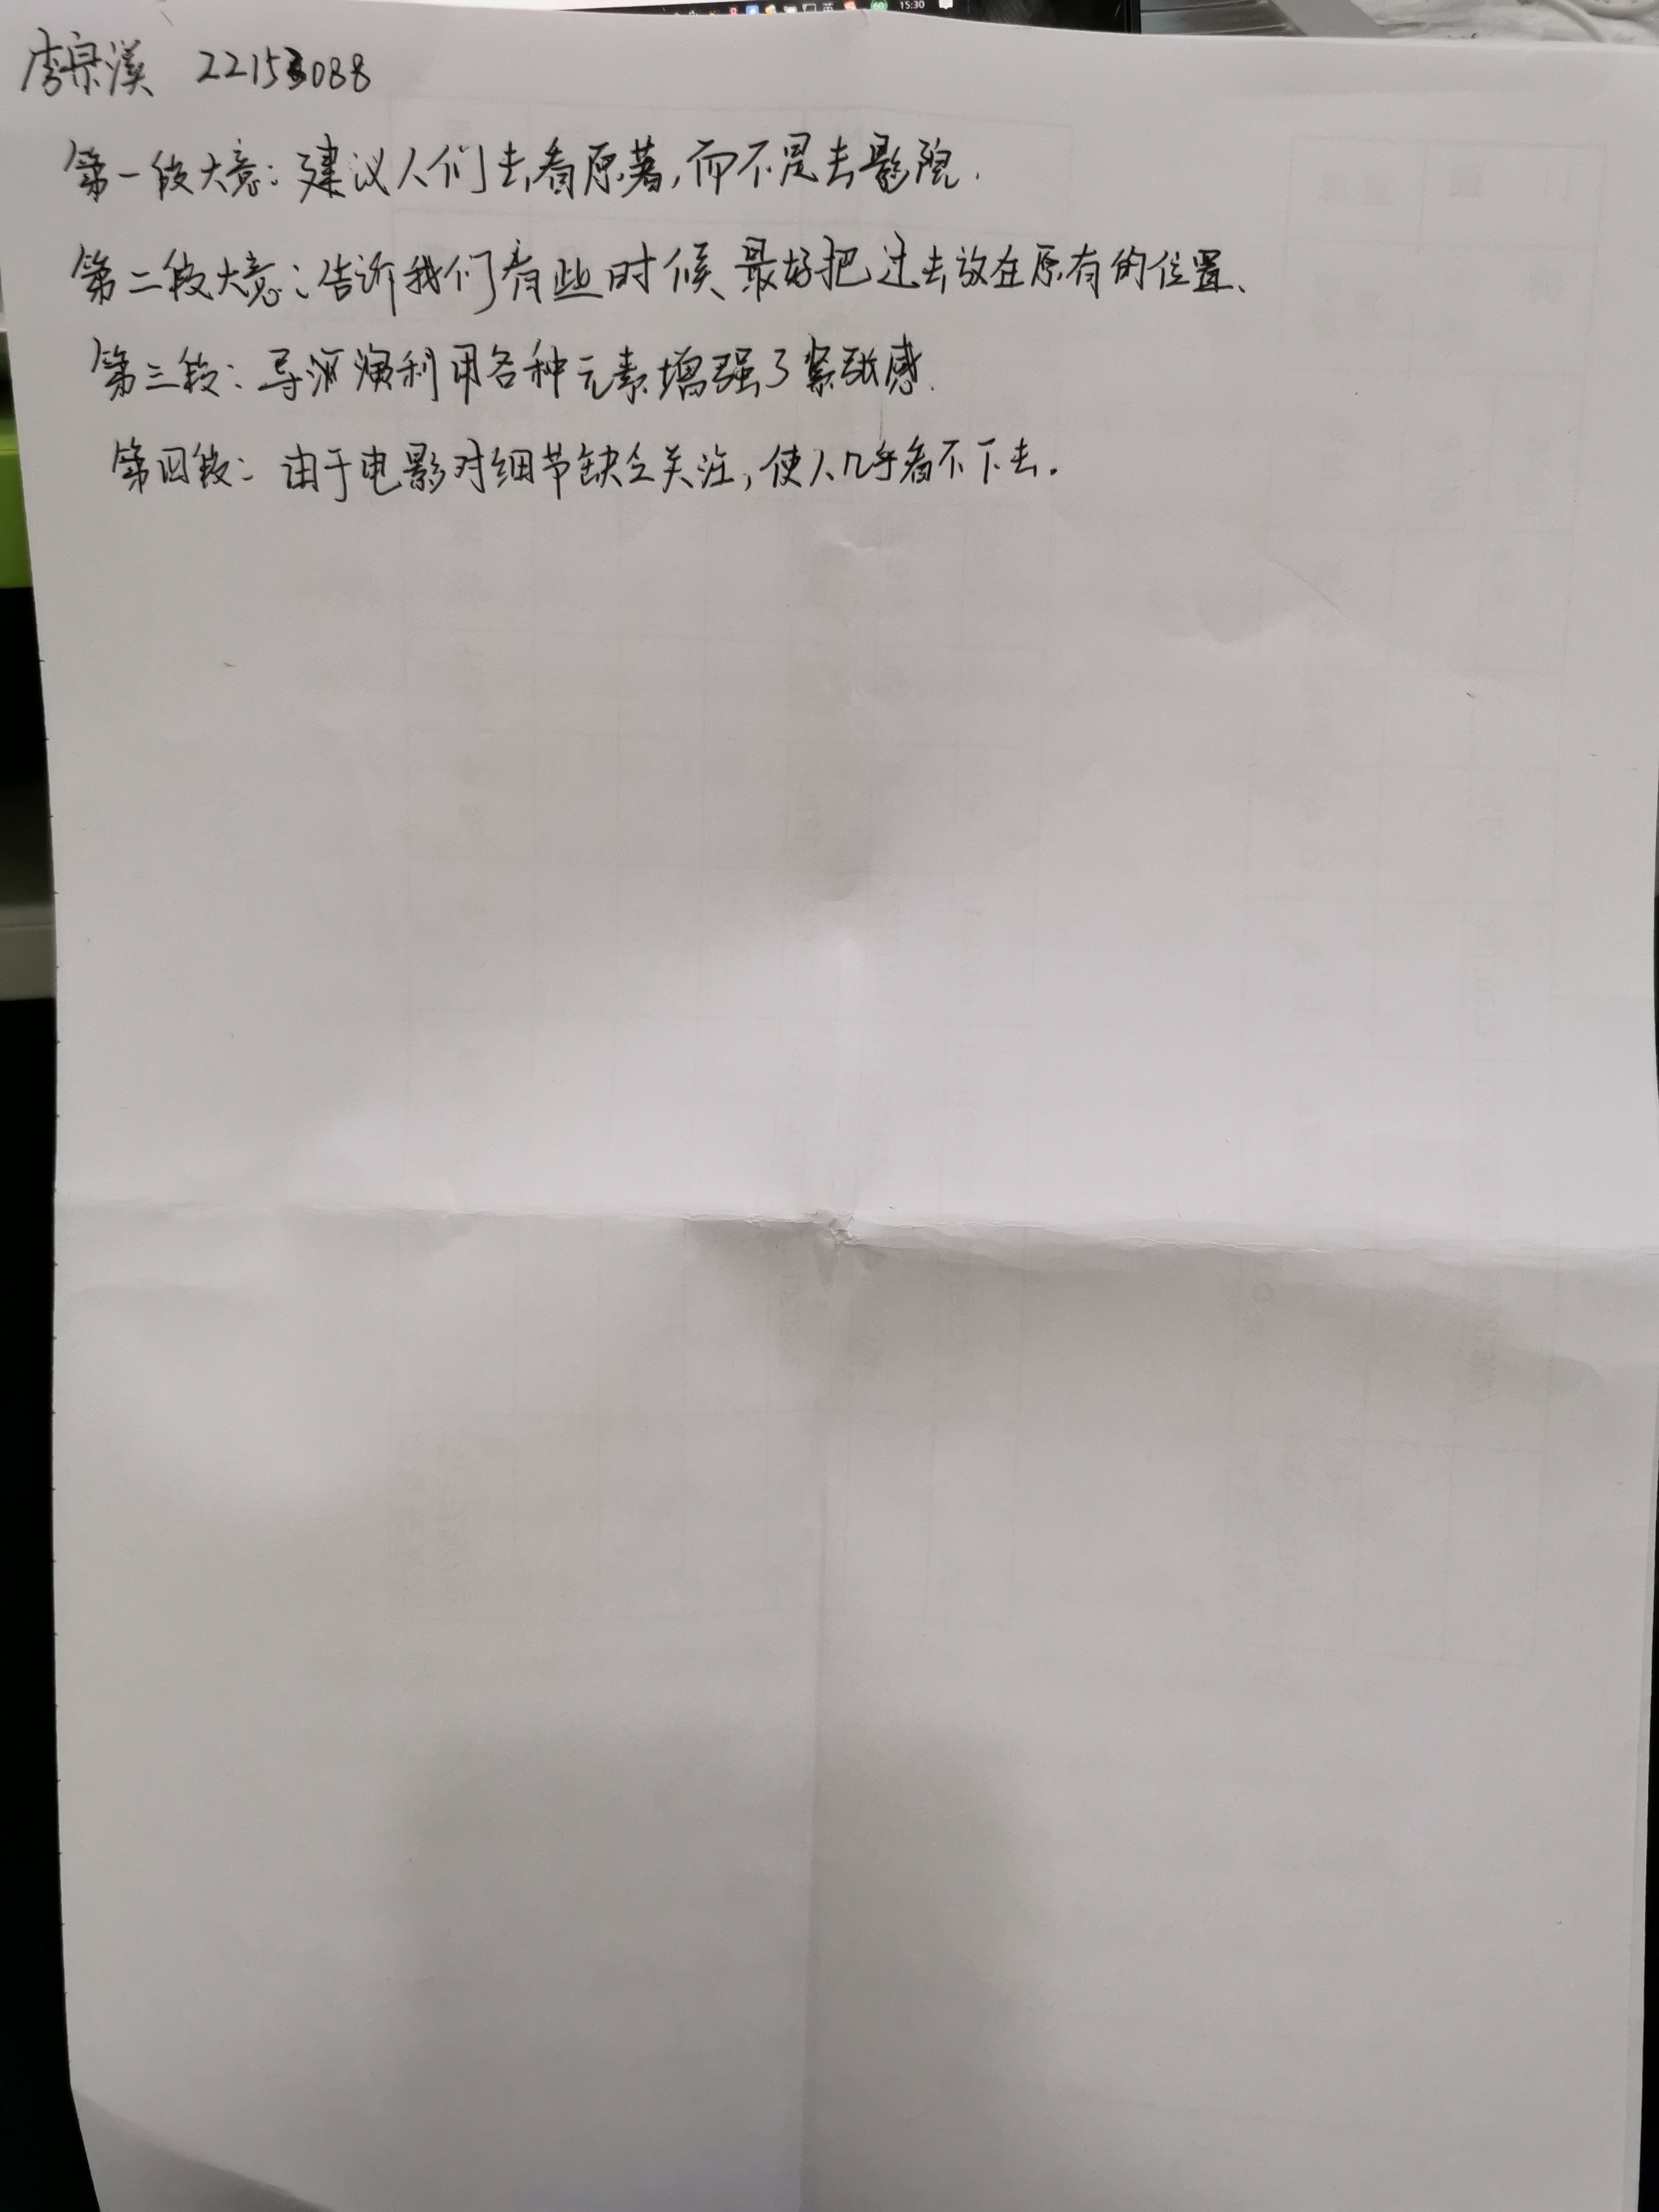 15:30
李泉溪 22153088
第一段大意：建议人们去看原著，而不是去影院.
第二段大意：告诉我们有些时候、最好把过去放在原有的位置、
第三段：导演利用各种元素增强了紧张感.
第四段：由于电影对细节缺乏关注，使人几乎看不下去.